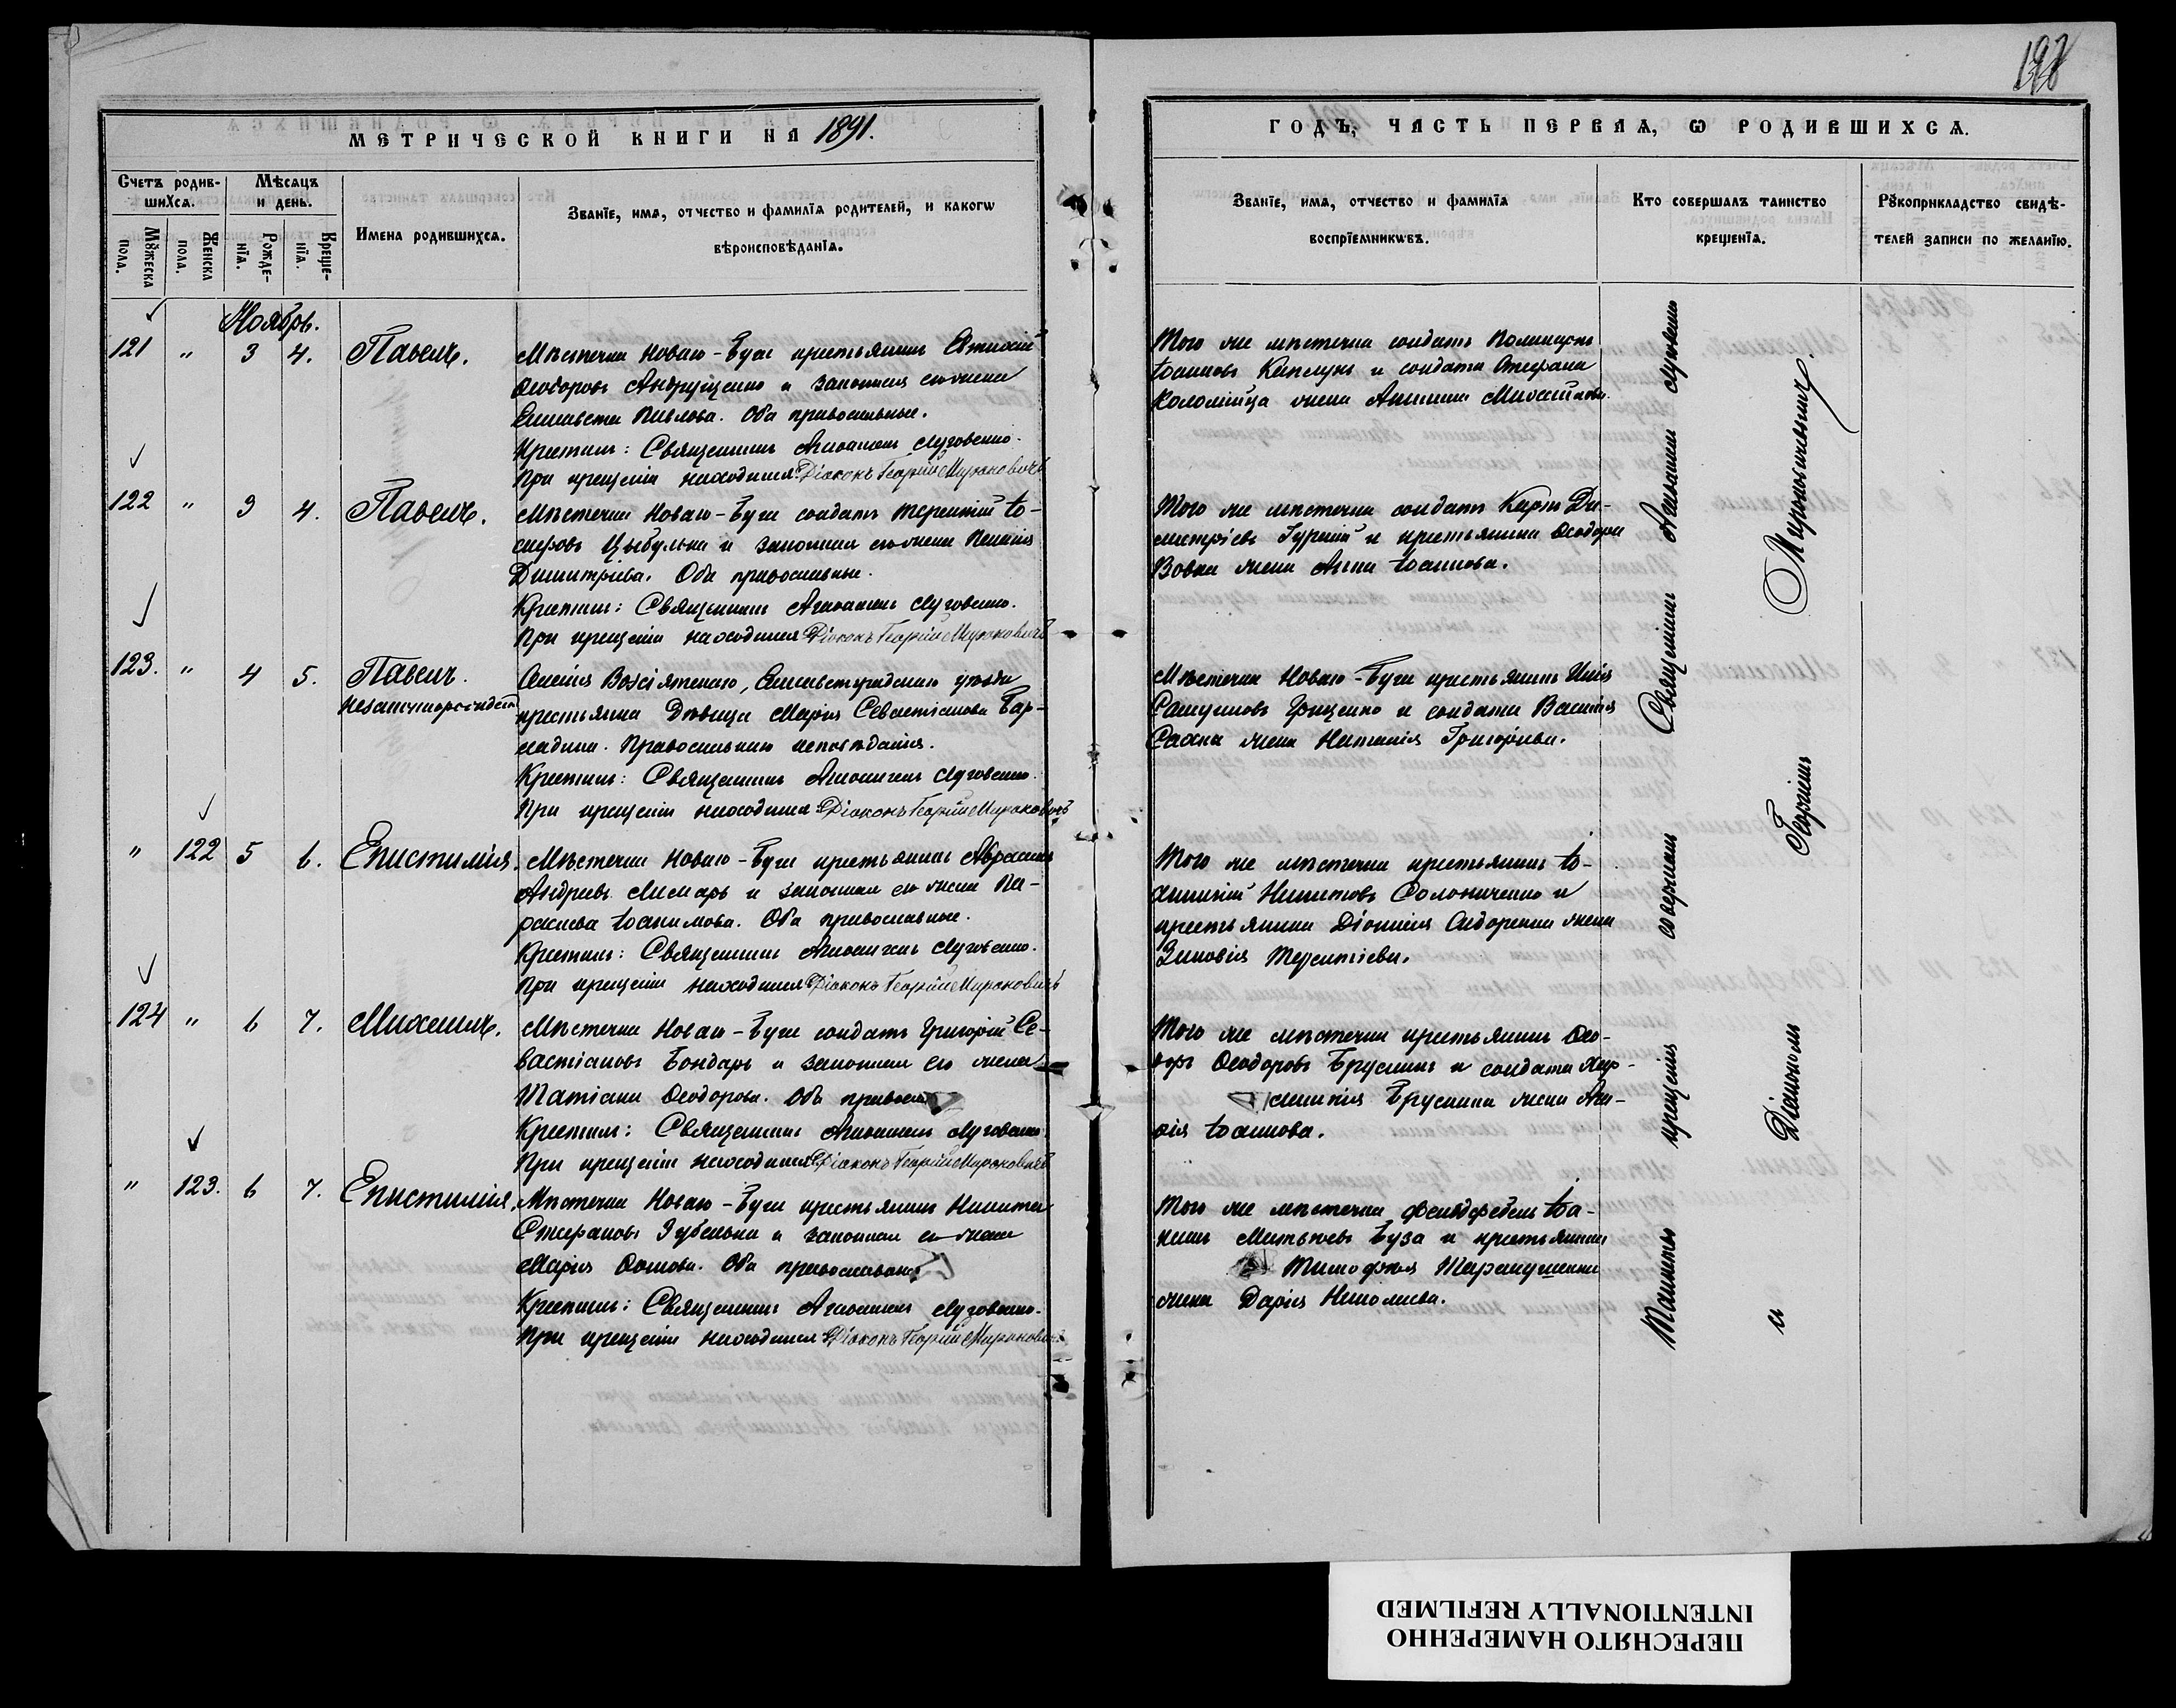 198
МЕТРИЧЕСКОЙ КНИГИ НА 1891.
Счетъ родив-
шихся.
Мѣсяцъ
и день.
Мужеска
пола.
Женска
пола.
Рожде-
нія.
Креще-
нія.
Имена родившихся.
Званіе, имя, отчество и фамилія родителей, и какогѡ
вѣроисповѣданія.
Ноябрь.
121 " 3 4. Павелъ.
Мѣстечка Новаго-Буга крестьянинъ
Ѳеодоровъ Андрущенко и законная его жена
Елисавета Павлова. Оба православные.
Крестилъ: Священникъ Аѳанасій Луговенко.
При крещеніи находился Діаконъ Георгій Мироновичъ
122 " 3 4. Павелъ.
Мѣстечка Новаго-Буга солдатъ Терентій Іо-
сифовъ Цыбулька и законная его жена Пелагія
Димитріева. Оба православные.
Крестилъ: Священникъ Аѳанасій Луговенко.
При крещеніи находился Діаконъ Георгій Мироновичъ
123. " 4 5. Павелъ.
незаконнорожденный
Селенія Возсіятскаго, Елисаветградскаго уѣзда
крестьянка Дѣвица Марія Севастіанова Бар-
ладина. Православнаго исповѣданія.
Крестилъ: Священникъ Аѳанасій Луговенко.
При крещеніи находился Діаконъ Георгій Мироновичъ
" 122 5 6. Епистимія.
Мѣстечка Новаго-Буга крестьянинъ Авраамъ
Андреевъ Лимарь и законная его жена Па-
раскева Іоакимова. Оба православные.
Крестилъ: Священникъ Аѳанасій Луговенко.
При крещеніи находился Діаконъ Георгій Мироновичъ
124 " 6 7. Михаилъ.
Мѣстечка Новаго-Буга солдатъ Григорій Се-
вастіановъ Бондарь и законная его жена
Татіана Ѳеодорова. Оба правосл
Крестилъ: Священникъ Аѳанасій Луговенко.
При крещеніи находился Діаконъ Георгій Мироновичъ
" 123. 6 7. Епистимія.
Мѣстечка Новаго-Буга крестьянинъ Никита
Стефановъ Зубенько и законная его жена
Марія Ѳомова. Оба православные
Крестилъ: Священникъ Аѳанасій Луговенко.
При крещеніи находился Діаконъ Георгій Мироновичъ
ГОДЪ, ЧАСТЬ ПЕРВАЯ, Ѡ РОДИВШИХСЯ.
Званіе, имя, отчество и фамилія
воспріемникѡвъ.
Кто совершалъ таинство
крещенія.
Рукоприкладство свидѣ-
телей записи по желанію.
Того же мѣстечка солдатъ
Іоанновъ Каплунъ и солдата Стефана
Коломійца жена Михайлова.
Того же мѣстечка солдатъ Карпъ Ди-
митріевъ Гуркій и крестьянина Ѳеодора
Вовка жена Анна Іоаннова.
Мѣстечка Новаго-Буга крестьянинъ Илія
Самуиловъ Грищенко и солдата Василія
Сахна жена Наталія Григорьева.
Того же мѣстечка крестьянинъ Іо-
анникій Никитовъ Солониченко и
крестьянина Діонисія Сидоренка жена
Зиновія Терентіева.
Того же мѣстечка крестьянинъ Ѳео-
доръ Ѳеодоровъ Бруслинъ и солдата Хар-
лампія Бруслина жена Ага-
фія Іоаннова.
Того же мѣстечка фельдфебель Іоа-
ннъ Матѳеевъ Буза и крестьянина
Тимоѳея Таранушенка
жена Дарія Николаева.
Таинство крещенія совершалъ Священникъ Аѳанасій Луговенко
и Діаконъ Георгій Мироновичъ.
ПЕРЕСНЯТО НАМЕРЕННО
INTENTIONALLY REFILMED